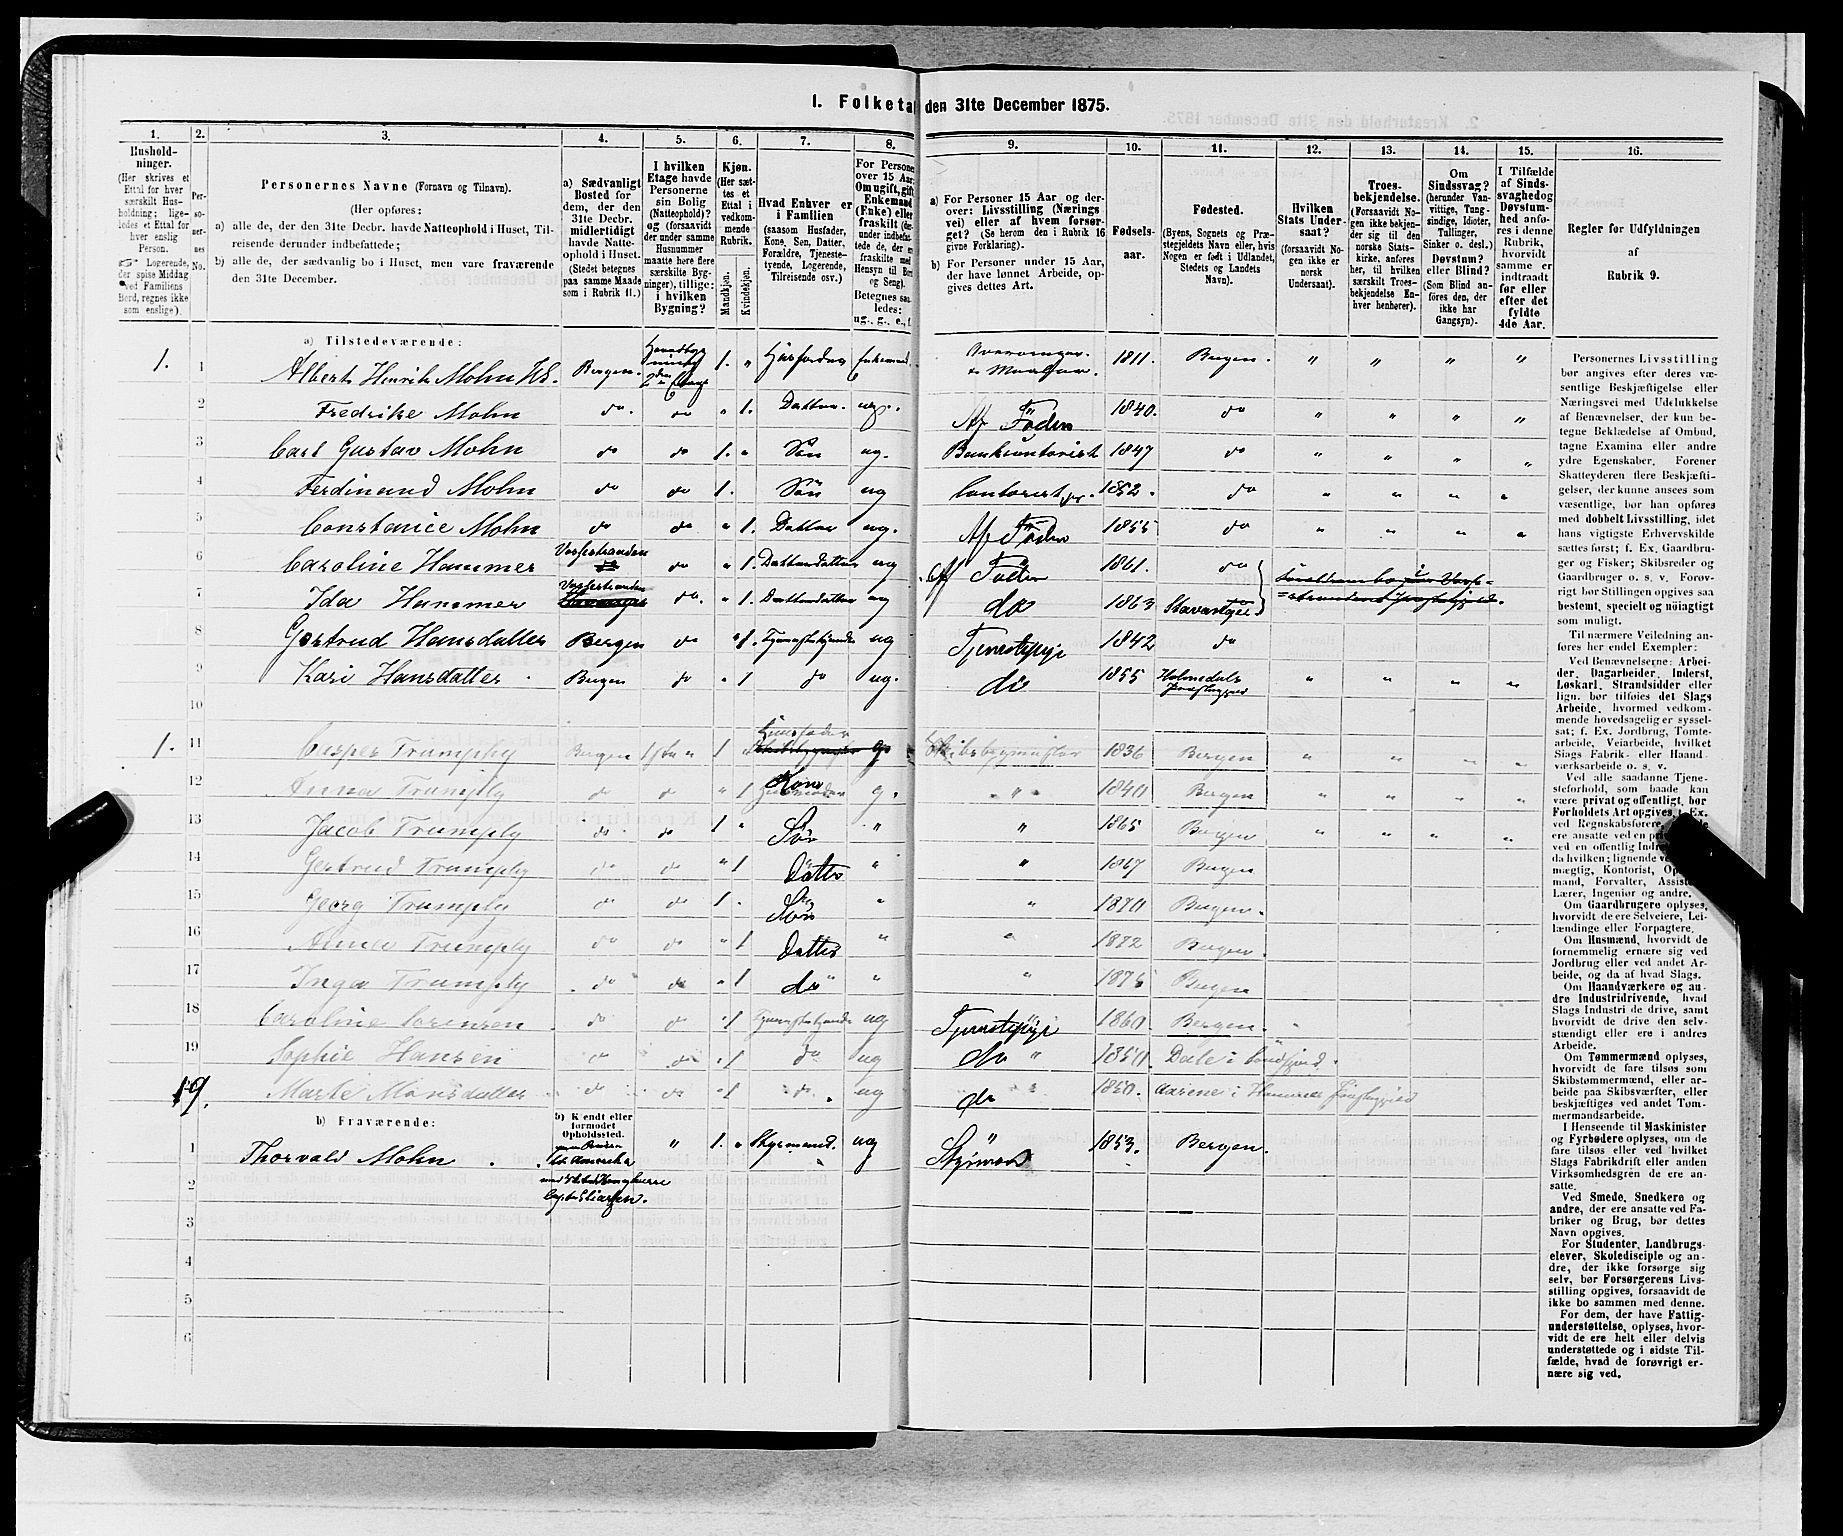 1. Folketa den 31te December 1875.
1. 2. 3. 4. 5. 6. 7. 8. 9. 10. 11. 12. 13. 14. 15. 16.
Hushold-
ninger.
(Her skrives et
Ettal for hver
særskilt Hus-
holdning; lige-
ledes et Ettal for
hver enslig
Person.
Logerende,
der spise Middag
ved Familiens
Bord, regnes ikke
som enslige).
Per-
so-
ner-
nes
No.
Personernes Navne (Fornavn og Tilnavn).
(Her opføres:
a) alle de, der den 31te Decbr. havde Natteophold i Huset, Til-
reisende derunder indbefattede;
b) alle de, der sædvanlig bo i Huset, men vare fraværende
den 31te December.
a) Sædvanligt
Bosted for
dem, der den
31te Decbr.
midlertidigt
havde Natte-
ophold i Huset.
(Stedet betegnes
paa samme Maade
som i Rubrik 11.)
I hvilken
Etage havde
Personerne
sin Bolig
(Natteophold)?
og (forsaavidt
der under samme
Husnummer
maatte høre flere
særskilte Byg-
ninger), tillige:
i hvilken
Bygning?
Kjøn.
(Her sæt-
tes et
Ettal i
vedkom-
mende
Rubrik.
Mandkjøn.
Kvindekjøn.
Hvad Enhver er
i Familien
(saasom Husfader,
Kone, Søn, Datter,
Forældre, Tjeneste-
tyende, Logerende,
Tilreisende osv.)
For Persone
over 15 Aar:
Om ugift, gift
Enkemand
(Enke) eller
fraskilt (der-
under indbefat-
tede de, der er
fraskilte med
Hensyn til Bord
og Seng).
Betegnes saa-
ledes:
ug., g., e., f.
a) For Personer 15 Aar og der-
over: Livsstilling (Nærings-
vei) eller af hvem forsør-
get? (Se herom den i Rubrik 16
givne Forklaring).
b) For Personer under 15 Aar,
der have lønnet Arbeide, op-
gives dettes Art.
Fødsels-
aar.
Fødested.
(Byens, Sognets og Præ-
stegjeldets Navn eller, hvis
Nogen er født i Udlandet,
Stedets og Landets
Navn).
Hvilken
Stats Under-
saat?
(forsaavidt No-
gen ikke er
norsk
Undersaat).
Troes-
bekjendelse.
(Forsaavidt No-
gen ikke bekjen-
der sig til den
norske Stats-
kirke, anføres
her, til hvilken
særskilt Troes-
bekjendelse En-
hver henhører).
Om
Sindssvag?
(herunder Van-
vittige, Tung-
sindige, Idioter,
Tullinger,
Sinker o. desl.)
Døvstum?
eller Blind?
(Som Blind an-
føres den, der
ikke har
Gangsyn).
I Tilfælde
af Sinds-
svaghed og
Døvstum-
hed anfø-
res i denne
Rubrik,
hvorvidt
samme er
indtraadt
før eller
efter det
fyldte
4de Aar.
Regler for Udfyldningen
af
Rubrik 9.
a) Tilstedeværende:
1. 1 Albert Henrik Mohn Bergen. 1. " Huusfader Enkemand 1811. Bergen. " " " "
2 Fredrike Mohn do. do " 1. Datter. ug. Af Faderen 1840. do " " " "
3 Carl Gustav Mohn do do 1. " Søn ug. Bankcontorist 1847 do " " " "
4 Ferdinand Mohn do do 1. Søn ug Contorist 1852. do " " " "
5 Constance Mohn do do " 1. Datter ug. Af Faderen 1855 do " " " "
6 Caroline Hammer do " 1. Datterdatter ug Af Fader 1861. do
7 Ida Hammer do. " 1. Datterdatter ug do 1863 Stavanger.
8 Gertrud Hansdatter Bergen do " 1. Tjenestetyende ug Tjenestepige 1842 do
9 Kari Hansdatter Bergen do " 1 do ug. do 1855 Holmedals Præstegjeld " " " "
10
1. 11 Casper Trumpby Bergen 1ste 1 Huusfader g Skibsbygmester 1836 Bergen " " " "
12 Anna Trumpby do do " 1 Kone g. " 1840 Bergen " " " "
13 Jacob Trumpby do do 1 " Søn " " 1865 Bergen " " " "
14 Gertrud Trumpby do do " 1 Datter " " 1867 Bergen
15 Georg Trumpby do do 1 . Søn " " 1870 Bergen.
16 Anna Trumpby do do " 1 Datter " " 1872 Bergen.
17 Inga Trumpby do do " 1 do " " 1875 Bergen
18 Caroline Sorensen do do " 1 Tjenestetyende ug Tjenestepige 1860 Bergen.
19 Sophie Hansen do do " 1 do ug do " 1850. Dale i Søndfjord.
19. Marte Monsdatter do do " 1 do ug do 1850. i Præstegjeld
b) Fraværende:
b) Kjendt eller
formodet
Opholdssted.
1 Thorvald Mohn " 1. " Styrmand. ug Styrmand 1853. Bergen.
2
3
4
5
6
Personernes Livsstilling
bør angives efter deres væ-
sentlige Beskjæftigelse eller
Næringsvei med Udelukkelse
af Benævnelser, der kun be-
tegne Beklædelse af Ombud,
tagne Examina eller andre
ydre Egenskaber. Forener
Skatteyderen flere Beskjæfti-
gelser, der kunne ansees som
væsentlige, bør han opføres
med dobbelt Livsstilling, idet
hans vigtigste Erhvervskilde
sættes først; f. Ex. Gaardbru-
ger og Fisker; Skibsreder og
Gaardbruger o. s. v. Forøv-
rigt bør Stillingen opgives saa
bestemt, specielt og nøiagtigt
som muligt.
Til nærmere Veiledning an-
føres her endel Exempler:
Ved Benævnelserne: Arbei-
der, Dagarbeider, Inderst,
Løskarl, Strandsidder eller
lign. bør tilføies det Slags
Arbeide, hvormed vedkom-
mende hovedsagelig er syssel-
sat; f. Ex. Jordbrug, Tomte-
arbeide, Veiarbeide, hvilket
Slags Fabrik- eller Haand-
værksarbeide o. s. v.
Ved alle saadanne Tjene-
steforhold, som baade kan
være privat og offentligt, bør
Forholdets Art opgives, f. Ex.
ved Regnskabsførere,
ere ansatte ved en
ved en offentlig
da hvilken; lignende
mægtig, Kontorist,
mand, Forvalter,
Lærer, Ingeniør og andre.
Om Gaardbrugere oplyses,
hvorvidt de ere Selveiere, Lei-
lændinge eller Forpagtere.
Om Husmænd, hvorvidt de
fornemmelig ernære sig ved
Jordbrug eller ved andet Ar-
beide, og da af hvad Slags.
Om Haandværkere og an-
dre Industridrivende, hvad
Slags Industri de drive, samt
hvorvidt de drive den selv-
stændigt eller ere i andres
Arbeide.
Om Tømmermænd oplyses,
hvorvidt de fare tilsøs som
Skibstømmermænd, eller ar-
beide paa Skibsværfter, eller
beskjæftiges ved andet Tøm-
mermandsarbeide.
I Henseende til Maskinister
og Fyrbødere oplyses, om de
fare tilsøs eller ved hvilket
Slags Fabrikdrift eller anden
Virksomhedsgren de ere an-
satte.
Ved Smede, Snedkere og
andre, der ere ansatte ved Fa-
briker og Brug, bør dettes
Navn opgives.
For Studenter, Landbrugs-
elever, Skoledisciple og an-
dre, der ikke forsørge sig
selv, bør Forsørgerens Livs-
stilling opgives, forsaavidt de
ikke bo sammen med denne.
For dem, der have Fattig-
understøttelse, oplyses, hvor-
vidt de ere helt eller delvis
understøttede og i sidste Til-
fælde, hvad de forøvrigt er-
nære sig ved.